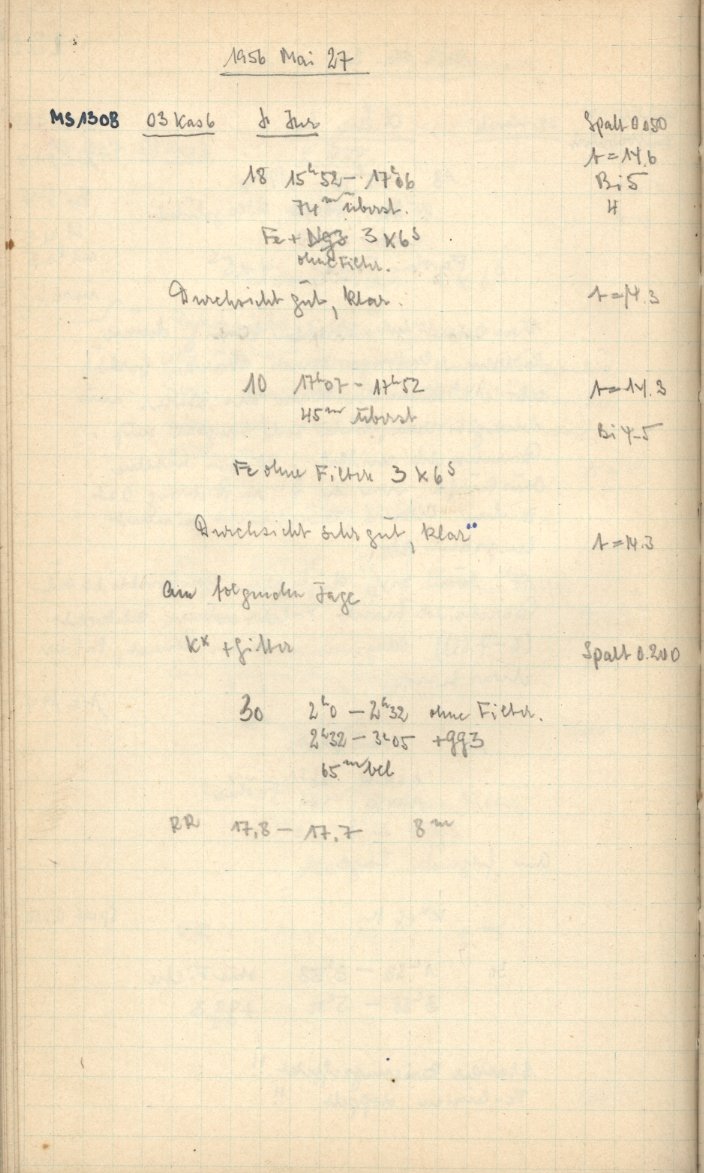 1956 Mai 27
MS 1308 03 Kas6 Spalt 0.050
t = 14.6
18 15ʰ52 – 17ʰ06 Bi 5
74ᵐ überst. 4
Fe + 3 x 6ˢ
ohne Filter.
Durchsicht gut, klar. t = 14.3
10 17ʰ07 – 17ʰ52 t = 14.3
45ᵐ überst Bi 4-5
Fe ohne Filter 3 x 6ˢ
Durchsicht sehr gut, klar t = 14.3
Am folgenden Tage
K* + Gitter Spalt 0.200
30 2ʰ0 – 2ʰ32 ohne Filter.
2ʰ32 – 3ʰ05 + gg3
65ᵐ bel
RR 17,8 – 17,7 8ᵐ